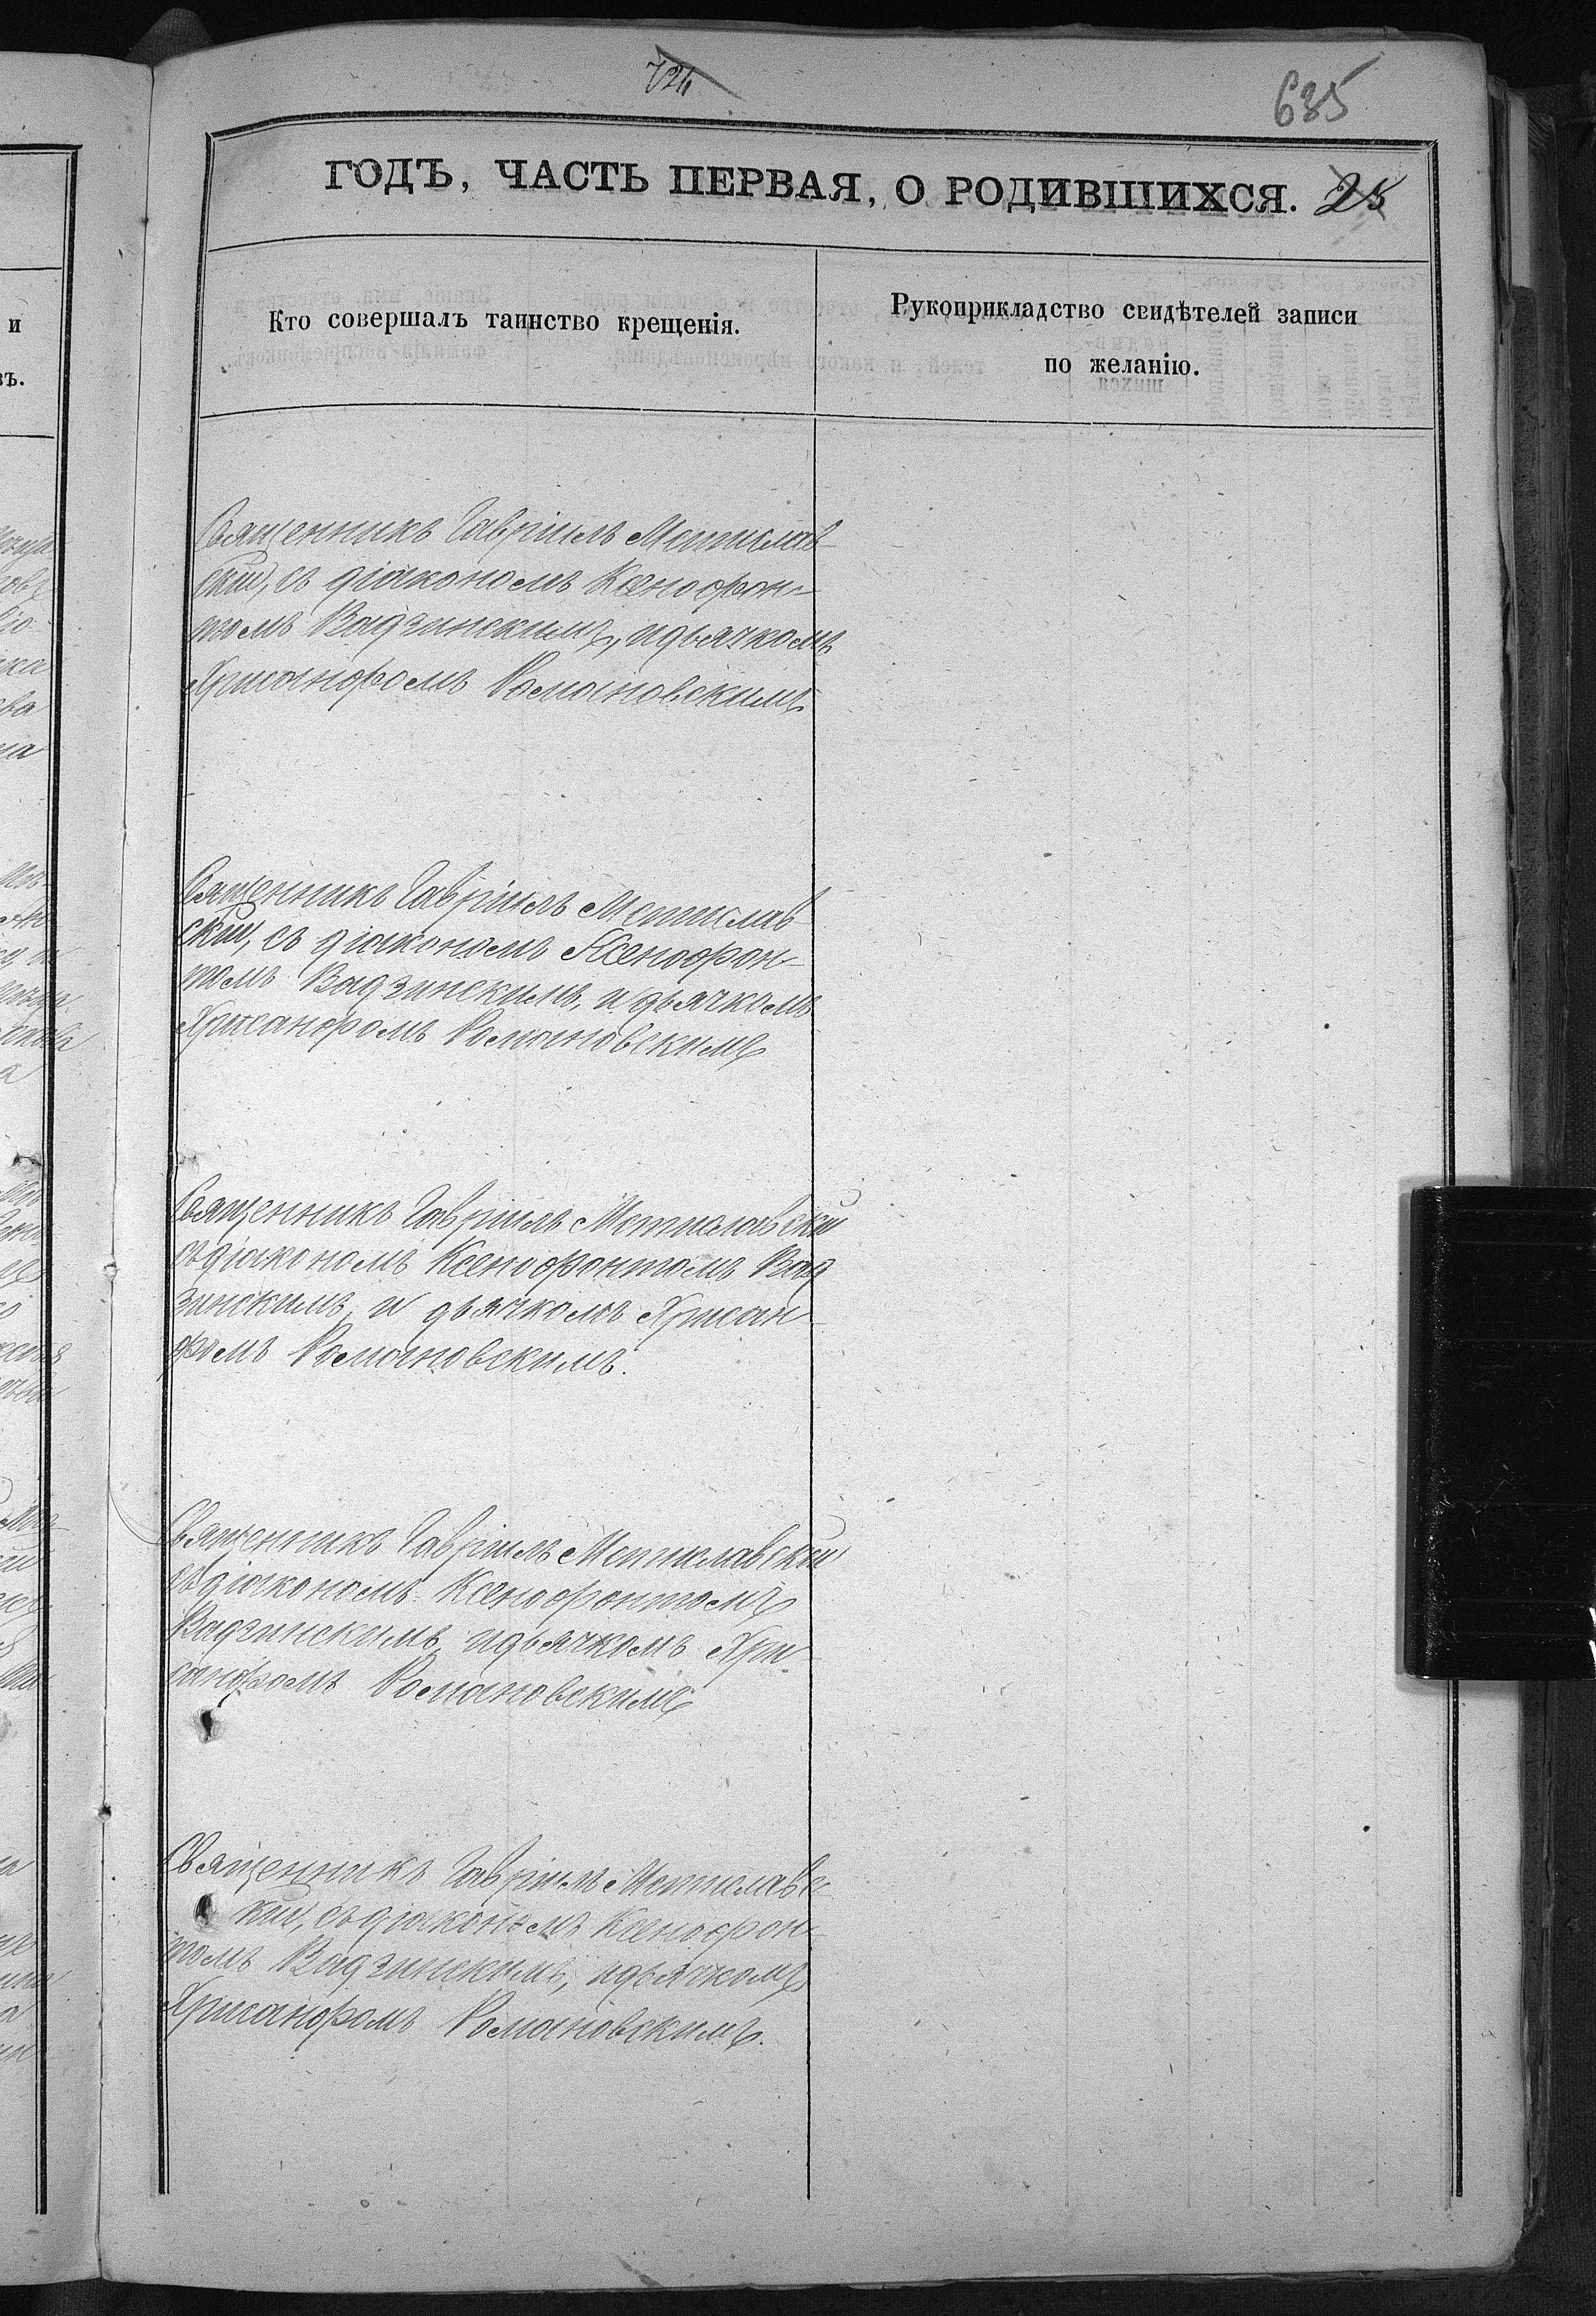 724
635
ГОДЪ, ЧАСТЬ ПЕРВАЯ, О РОДИВШИХСЯ. 25
Кто совершалъ таинство крещенія.
Рукоприкладство свидѣтелей записи
по желанію.
Священникъ Гавріилъ Мстислав-
скій, съ діакономъ Ксенофон-
томъ Вадзинскимъ, и дьячкомъ
Хрисанфомъ Романовскимъ
Священникъ Гавріилъ Мстислав
скій, съ діакономъ Ксенофон-
томъ Вадзинскимъ, и дьячкомъ
Хрисанфомъ Романовскимъ
Священникъ Гавріилъ Мстиславскій
съ діакономъ Ксенофонтомъ Вад
зинскимъ, и дьячкомъ Хрисан-
фомъ Романовскимъ.
Священникъ Гавріилъ Мстиславскій
съ діакономъ Ксенофонтомъ
Вадзинскимъ, и дьячкомъ Хри-
санфомъ Романовскимъ
Священникъ Гавріилъ Мстиславс-
кій, съ діакономъ Ксенофон-
томъ Вадзинскимъ, и дьячкомъ
Хрисанфомъ Романовскимъ.